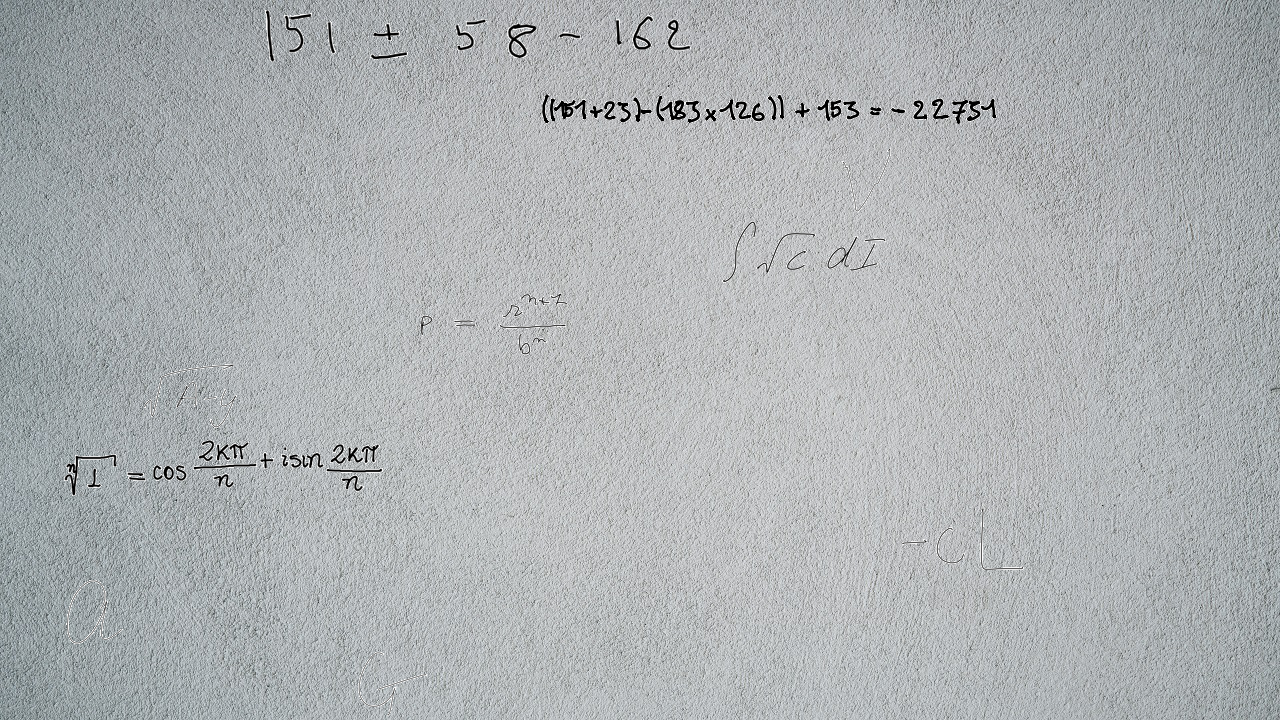 151 ± 58 - 162
((151+23)-(183×126)) + 153 = -22731
V
∫√c dI
p = r^{n+1}/b^n
ⁿ√1 = cos 2kπ/n + isin 2kπ/n
-cL